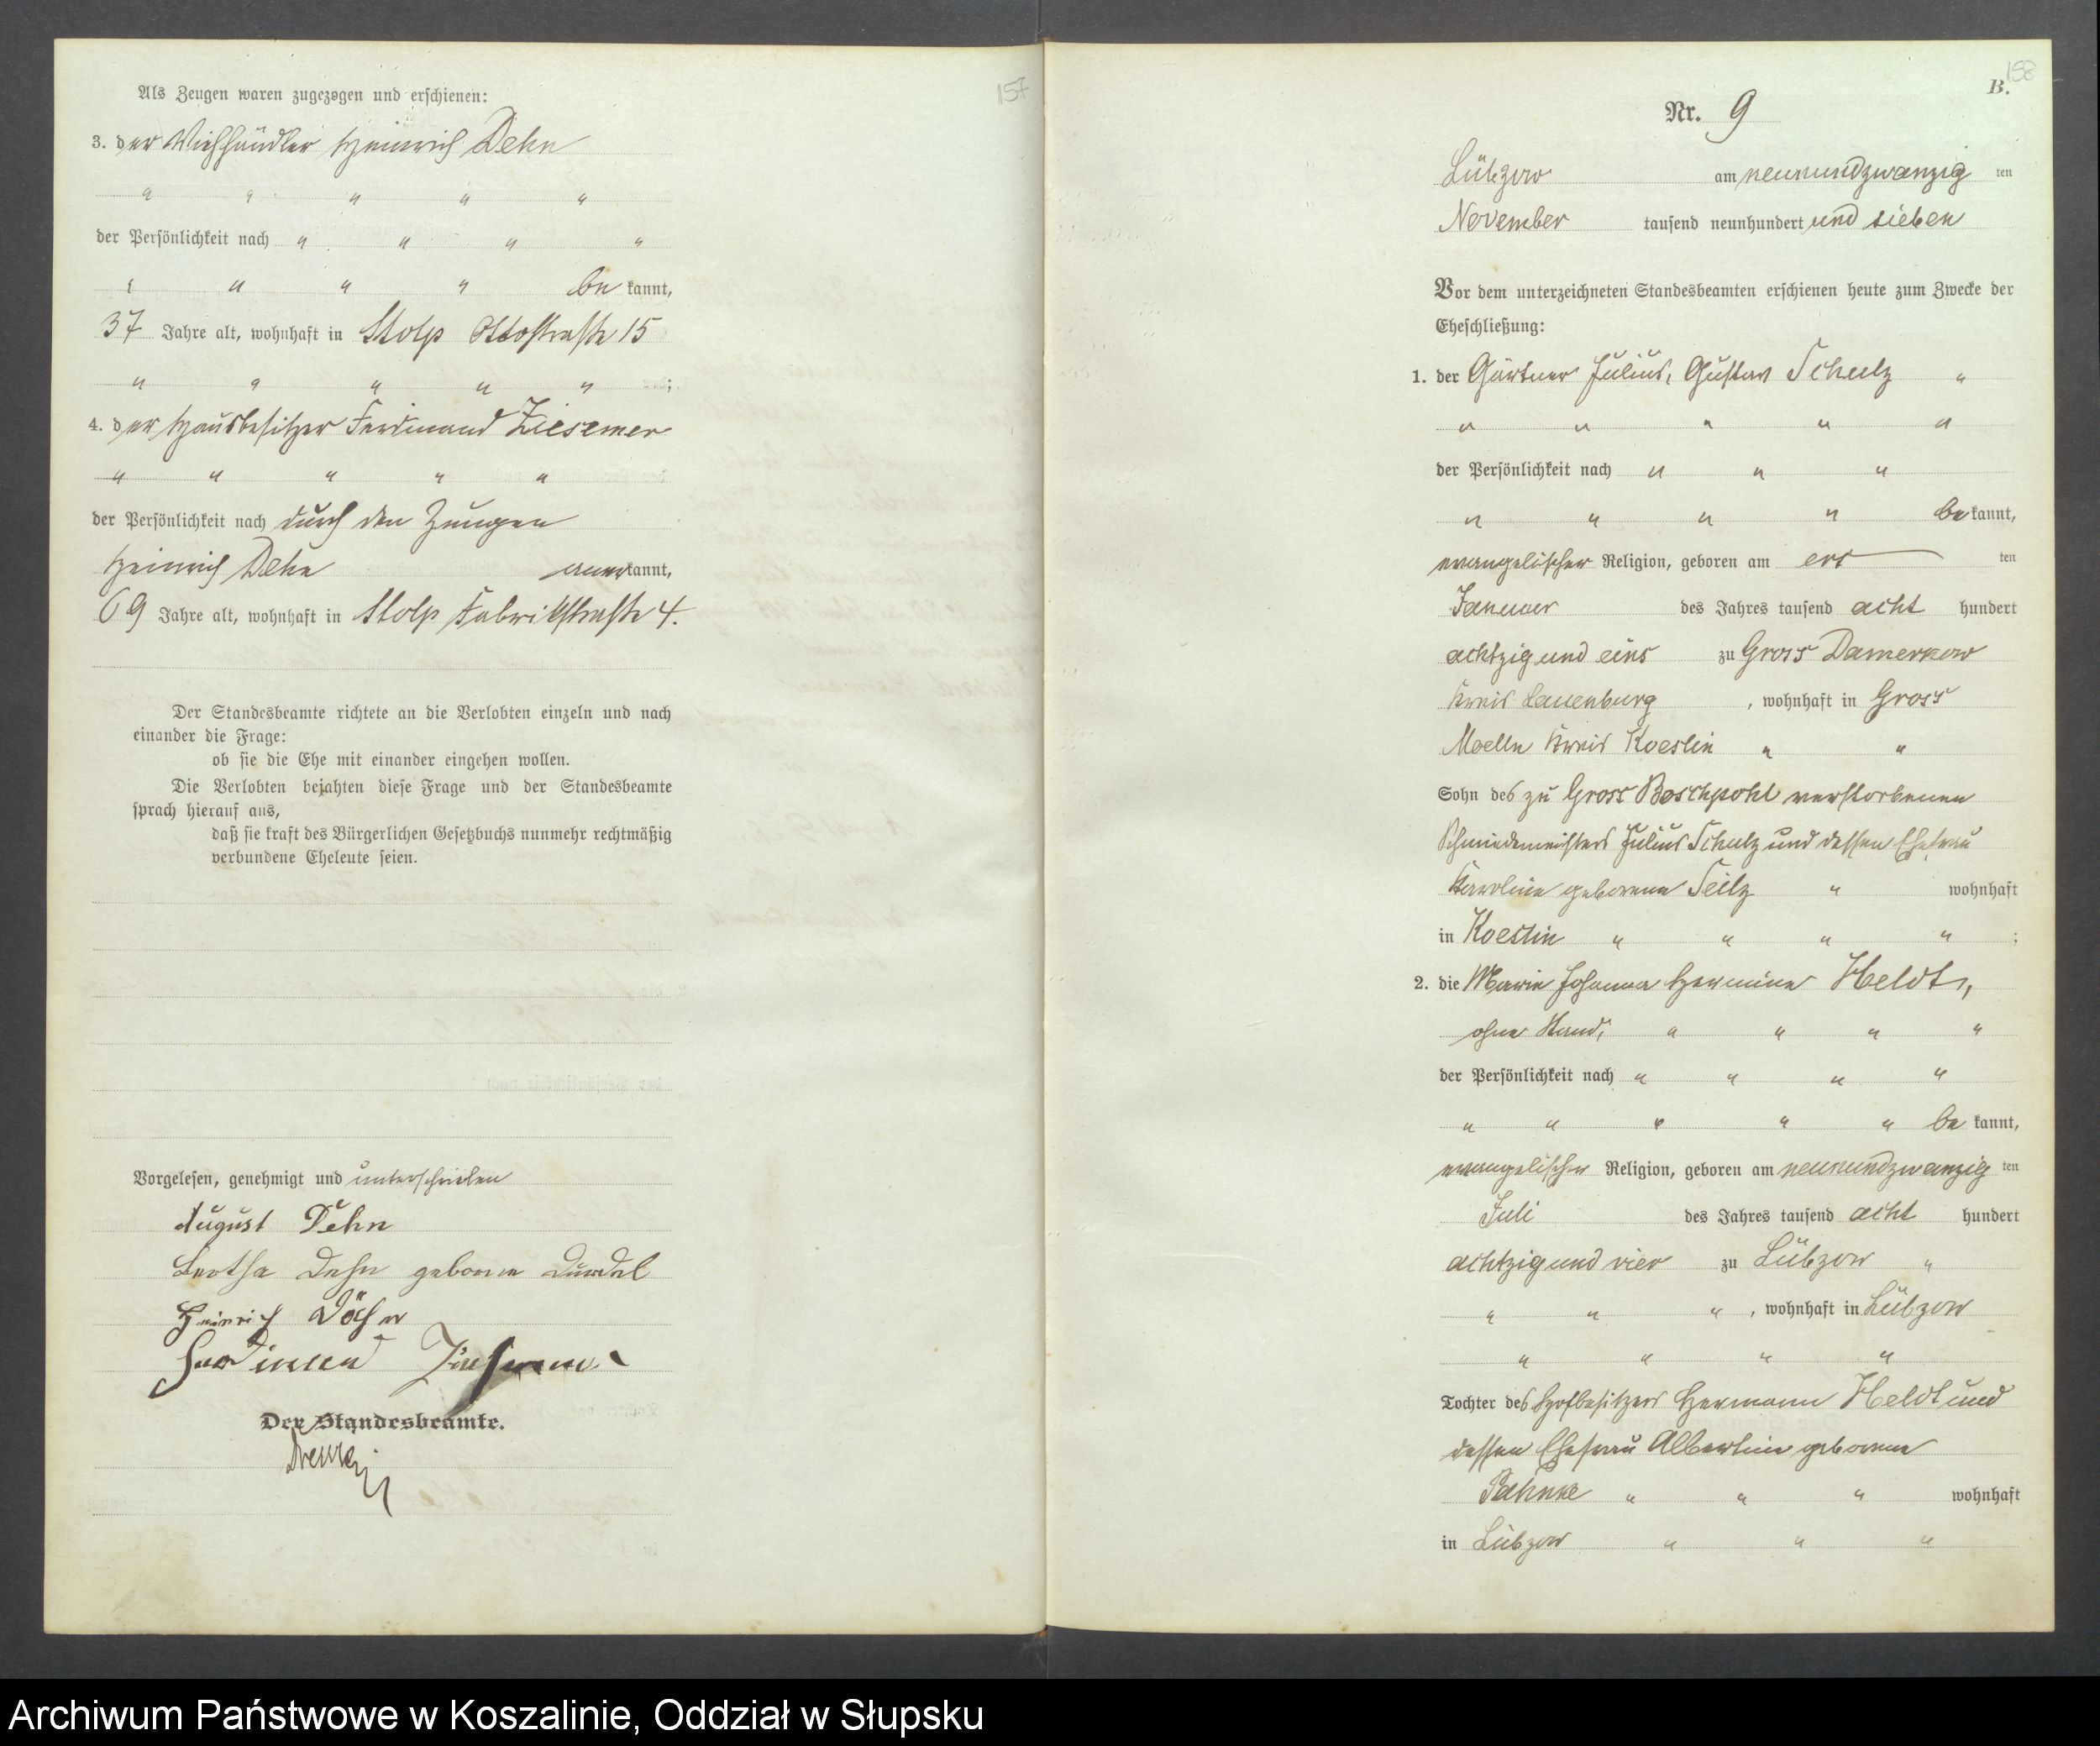 157
Als Zeugen waren zugezogen und erschienen:
3. der Viehhändler Heinrich Dehn
" " " " "
der Persönlichkeit nach " " " "
" " " " be kannt,
37 Jahre alt, wohnhaft in Stolp Ottostraße 15
" " " " " ;
4. der Hausbesitzer Ferdinand Ziesemer
" " " " "
der Persönlichkeit nach durch den Zeugen
Heinrich Dehn anerkannt,
69 Jahre alt, wohnhaft in Stolp Fabrikstraße 4.
Der Standesbeamte richtete an die Verlobten einzeln und nach
einander die Frage:
ob sie die Ehe mit einander eingehen wollen.
Die Verlobten bejahten diese Frage und der Standesbeamte
sprach hierauf aus,
daß sie kraft des Bürgerlichen Gesetzbuchs nunmehr rechtmäßig
verbundene Eheleute seien.
Vorgelesen, genehmigt und unterschrieben
August Dehn
Bertha Dehn geborene
Heinrich Döhn
Ferdinand Ziesemer
Der Standesbeamte.
158
B.
Nr. 9
Lübzow am neunundzwanzig ten
November tausend neunhundert und sieben
Vor dem unterzeichneten Standesbeamten erschienen heute zum Zwecke der
Eheschließung:
1. der Gärtner Julius, Gustav Schulz "
" " " " "
der Persönlichkeit nach " " "
" " " " be kannt,
evangelischer Religion, geboren am ers ten
Januar des Jahres tausend acht hundert
achtzig und eins zu Gross Damerkow
Kreis Lauenburg , wohnhaft in Gross
Moelln Kreis Koeslin " "
Sohn des zu Gross Boschpohl verstorbenen
Schmiedemeisters Julius Schulz und dessen Ehefrau
Karoline geborene Seilz " wohnhaft
in Koeslin " " " " ;
2. die Marie Johanna Hermine Heldt,
ohne Stand, " " " "
der Persönlichkeit nach " " " "
" " " " " be kannt,
evangelischer Religion, geboren am neunundzwanzig ten
Juli des Jahres tausend acht hundert
achtzig und vier zu Lübzow "
" " " , wohnhaft in Lübzow
" " " "
Tochter des Hofbesitzers Hermann Heldt und
dessen Ehefrau Albertine geborene
Pahnke " " " wohnhaft
in Lübzow " " "
Archiwum Państwowe w Koszalinie, Oddział w Słupsku